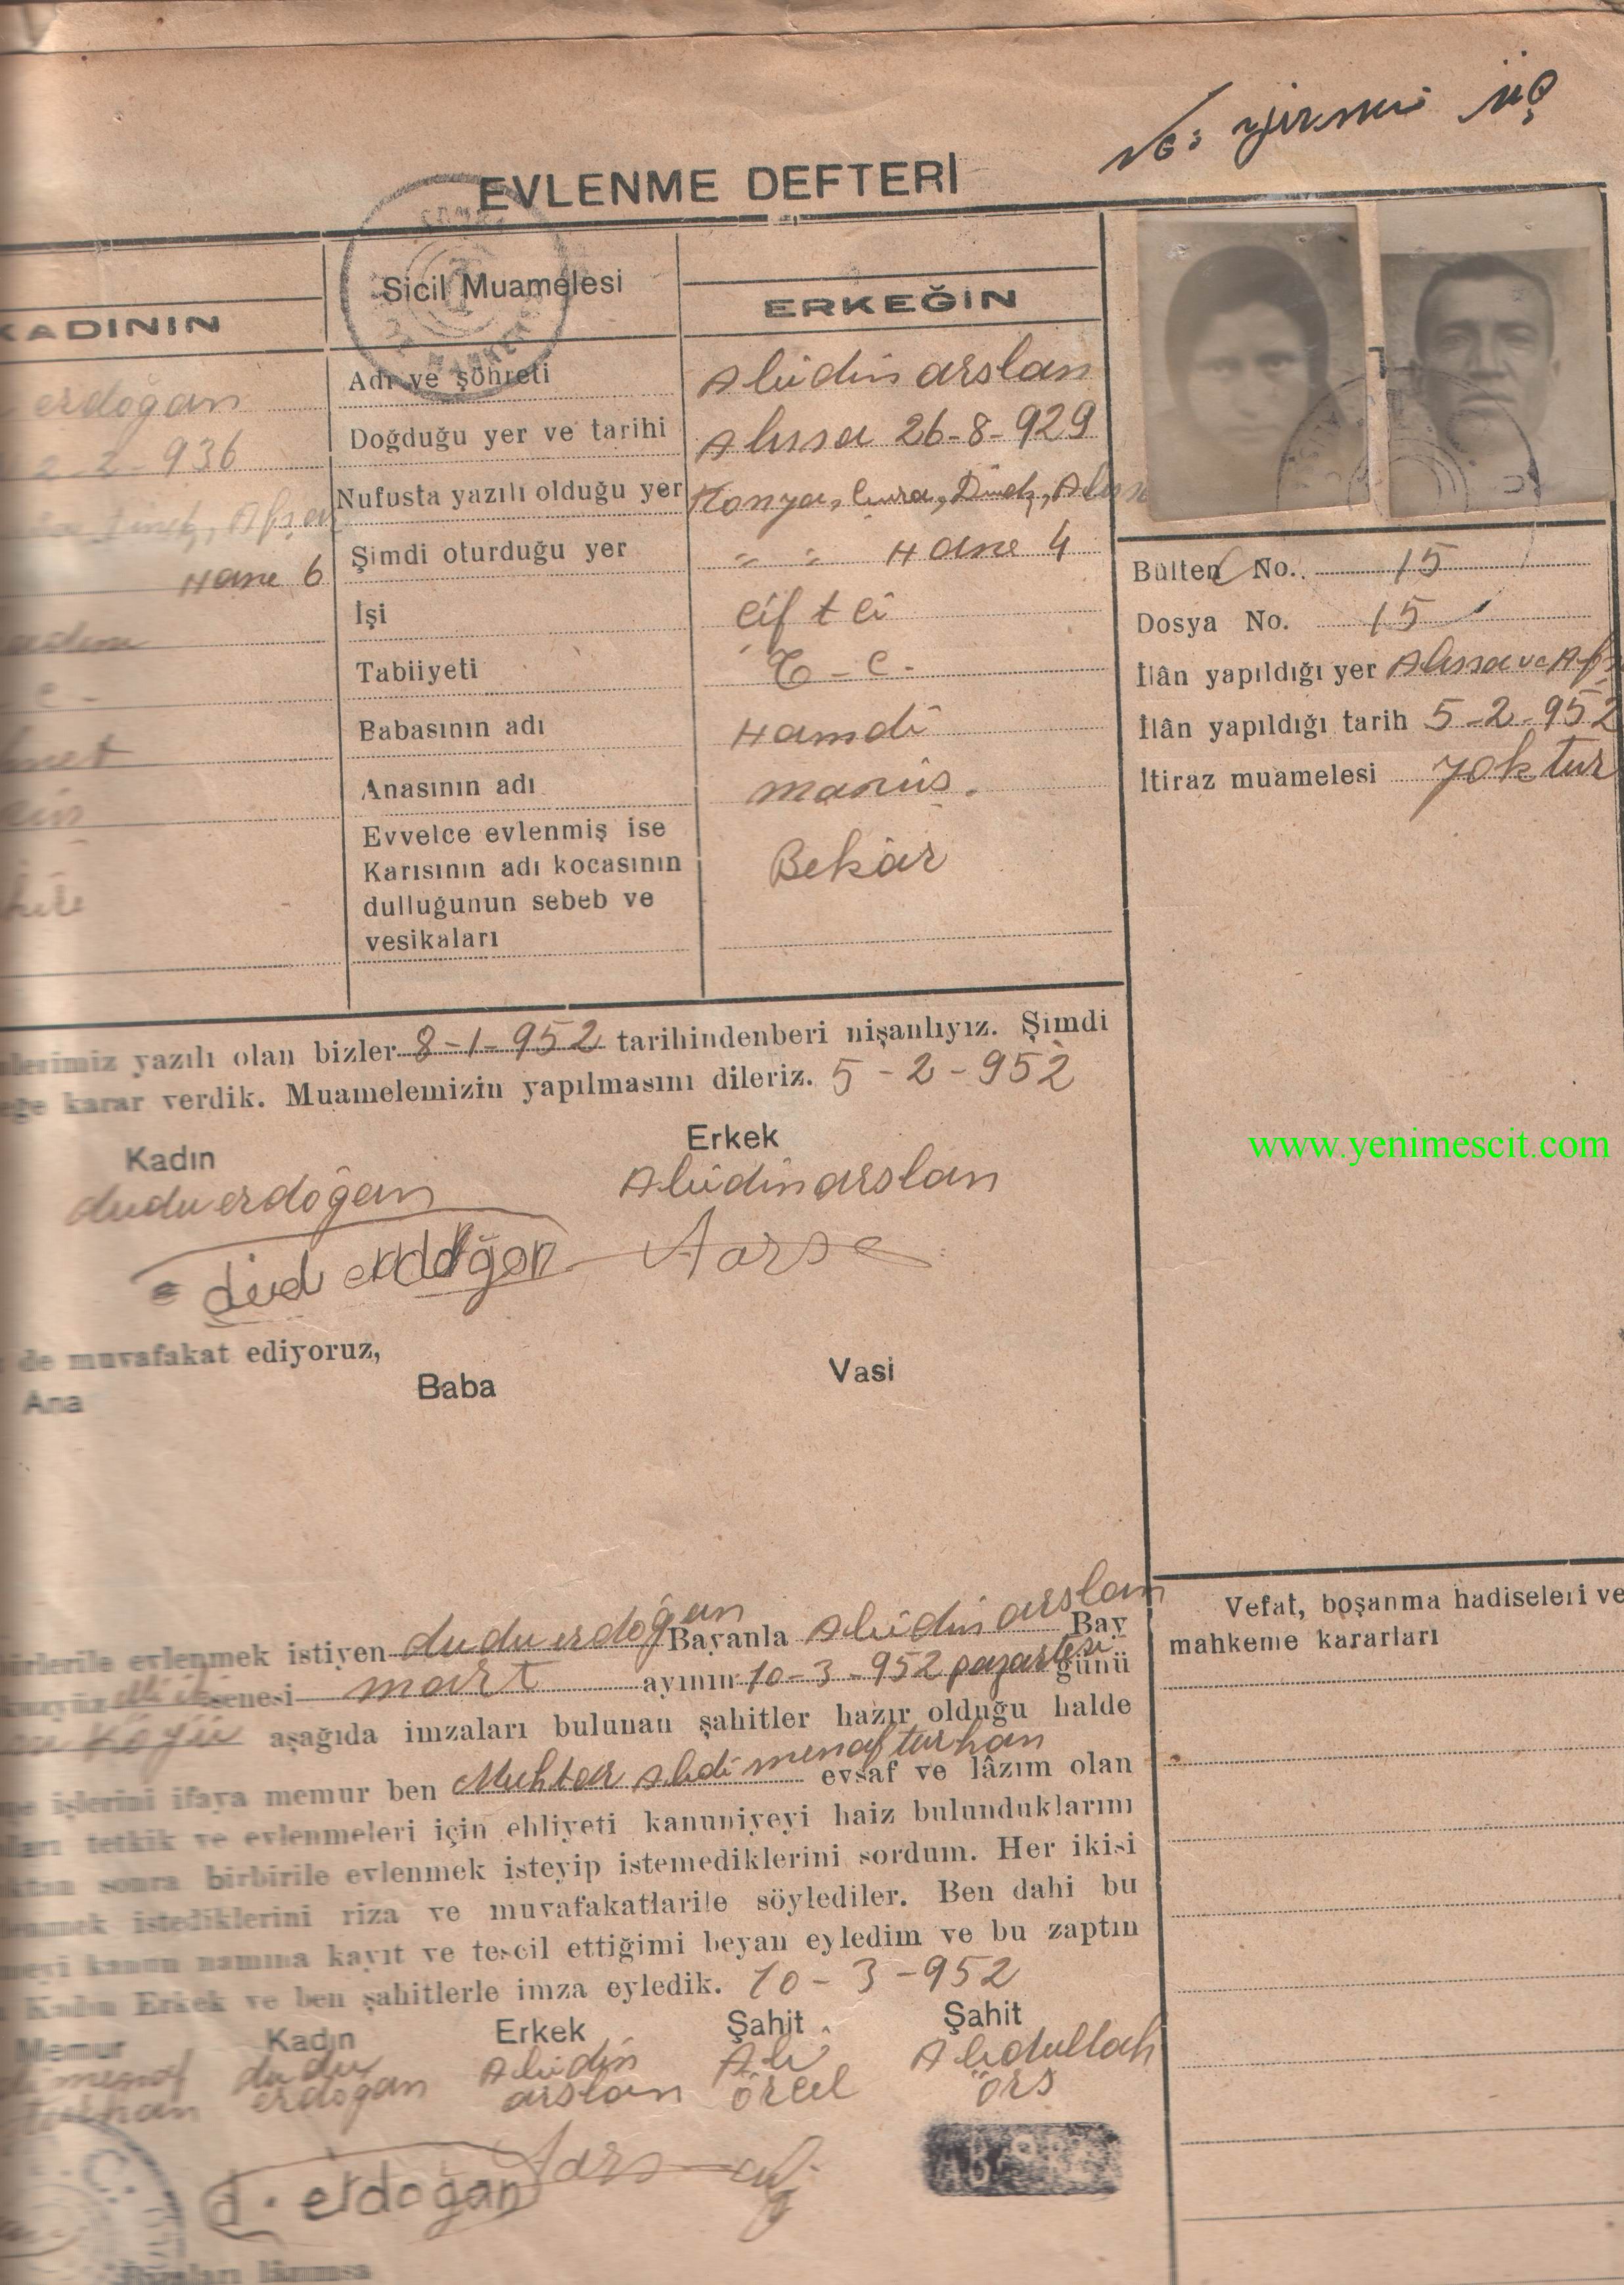 No: yirmi üç
EVLENME DEFTERİ
KADININ
Sicil Muamelesi
ERKEĞİN
erdoğan
Adı ve şöhreti
Abidin arslan
2-2-936
Doğduğu yer ve tarihi
26-8-929
Nufusta yazılı olduğu yer
Konya,
Hane 6
Şimdi oturduğu yer
" " Hane 4
İşi
Çiftci
Tabiiyeti
T-C-
Babasının adı
Hamdi
Anasının adı
Evvelce evlenmiş ise
Karısının adı kocasının
dulluğunun sebeb ve
vesikaları
Bekâr
Bülten No. 15
Dosya No. 15
İlân yapıldığı yer
İlân yapıldığı tarih 5-2-952
İtiraz muamelesi yoktur
yazılı olan bizler 8-1-952 tarihindenberi nişanlıyız. Şimdi
karar verdik. Muamelemizin yapılmasını dileriz. 5-2-952
Kadın
Erkek
dudu erdoğan
Abidin arslan
erdoğan
de muvafakat ediyoruz,
Ana
Baba
Vasi
www.yenimescit.com
evlenmek istiyen dudu erdoğan Bayanla Abidin arslan Bay
senesi mart ayının 10-3-952 pazartesi günü
köyü aşağıda imzaları bulunan şahitler hazır olduğu halde
işlerini ifaya memur ben Muhtar Abdi menaf turhan evsaf ve lâzım olan
tetkik ve evlenmeleri için ehliyeti kanuniyeyi haiz bulunduklarını
sonra birbirile evlenmek isteyip istemediklerini sordum. Her ikisi
istediklerini riza ve muvafakatlarile söylediler. Ben dahi bu
kanun namına kayıt ve tescil ettiğimi beyan eyledim ve bu zaptın
Kadın Erkek ve ben şahitlerle imza eyledik. 10-3-952
Memur
Kadın
Erkek
Şahit
Şahit
menaf
turhan
dudu
erdoğan
Abidin
arslan
Ali
Abdullah
örs
d. erdoğan
Vefat, boşanma hadiseleri ve
mahkeme kararları